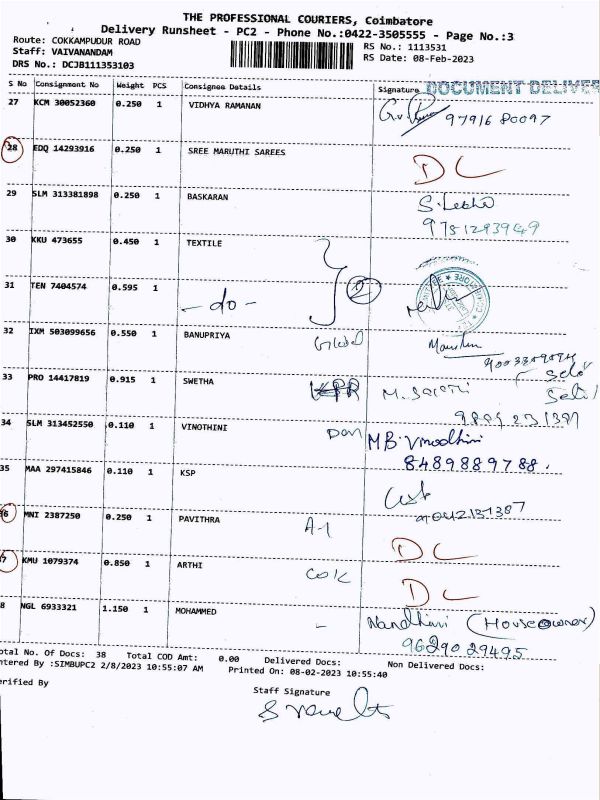 THE PROFESSIONAL COURIERS, Coimbatore
Delivery Runsheet - PC2 - Phone No.:0422-3505555 - Page No.:3
Route: COKKAMPUDUR ROAD
Staff: VAIVANANDAM
DRS No.: DCJB111353103
RS No.: 1113531
RS Date: 08-Feb-2023
S No Consignment No Weight PCS Consignee Details Signature DOCUMENT DELIVER
27 KCM 30052360 0.250 1 VIDHYA RAMANAN 9791680097
28 EDQ 14293916 0.250 1 SREE MARUTHI SAREES DC
29 SLM 313381898 0.250 1 BASKARAN
30 KKU 473655 0.450 1 TEXTILE
31 TEN 7404574 0.595 1 - do - 2
32 IXM 503099656 0.550 1 BANUPRIYA
33 PRO 14417819 0.915 1 SWETHA
34 SLM 313452550 0.110 1 VINOTHINI M.B. Vinodhini
8489889788.
35 MAA 297415846 0.110 1 KSP
36 MNI 2387250 0.250 1 PAVITHRA A-1 DC
37 KMU 1079374 0.850 1 ARTHI COK DC
8 NGL 6933321 1.150 1 MOHAMMED - Nandhini (House owner)
9629029495
otal No. Of Docs: 38 Total COD Amt: 0.00 Delivered Docs: Non Delivered Docs:
ntered By :SIMBUPC2 2/8/2023 10:55:07 AM Printed On: 08-02-2023 10:55:40
erified By
Staff Signature